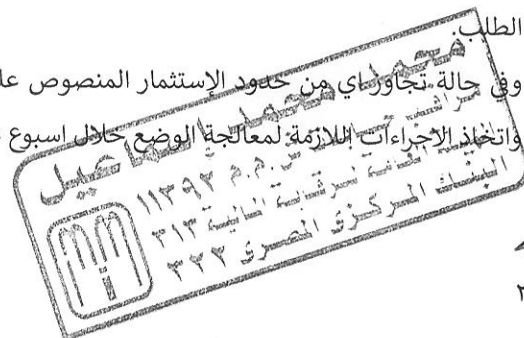 الطلب.
وفى حالة تجاوز اي من حدود الإستثمار المنصوص
واتخاذ الاجراءات اللازمة لمعالجة الوضع خلال اسبوع
محمد محمد إسماعيل
س.م.م ١١٣٩٢
الهيئة العامة للرقابة المالية ٣١٣
البنك المركزى المصرى ٣٢٢